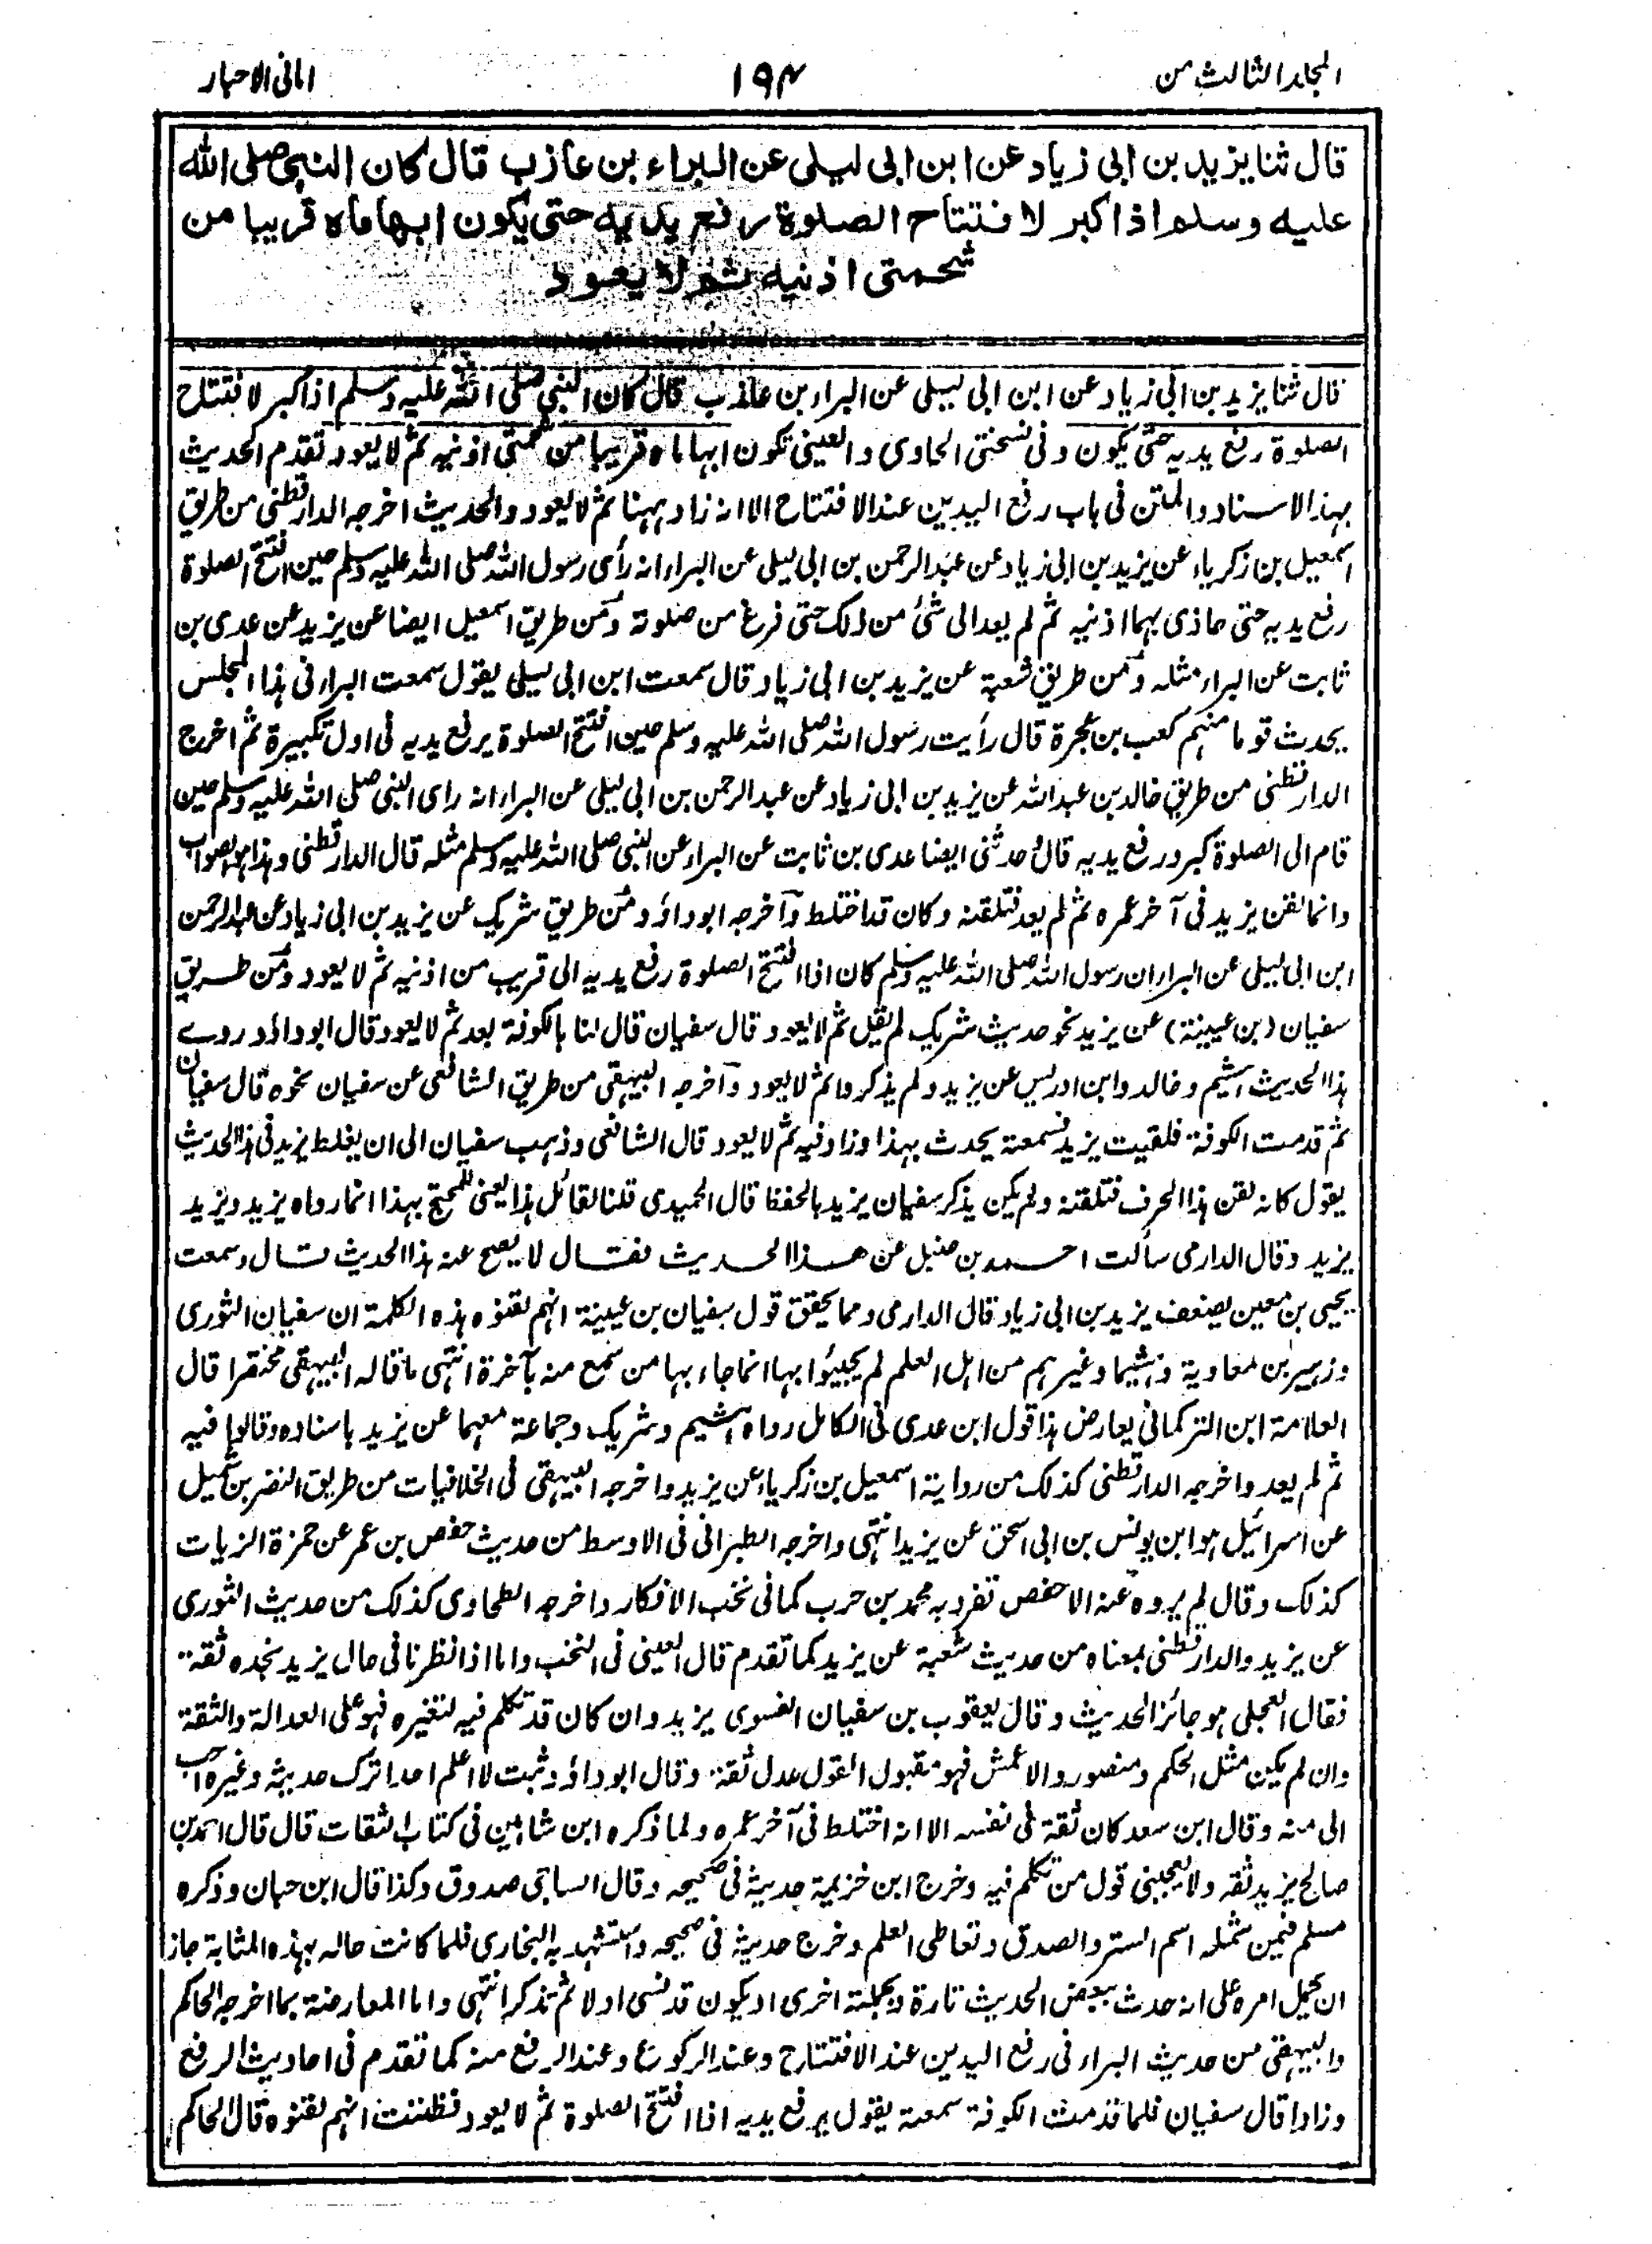 المجلد الثالث من
۱۹۴
امانی الاحبار
قال ثنا یزید بن ابی زیاد عن ابن ابی لیلی عن البراء بن عازب قال کان النبی صلی الله
علیه وسلم اذا کبر لافتتاح الصلوة رفع یدیه حتی یکون ابهاماه قریبا من
شحمتی اذنیه ثم لا یعود
قال ثنا یزید بن ابی زیاد عن ابن ابی لیلی عن البراء بن عازب قال کان النبی صلی الله علیه وسلم اذا کبر لافتتاح
الصلوة رفع یدیه حتی یکون وفی نسختی الحاوی والعینی تکون ابهاماه قریبا من شحمتی اذنیه ثم لا یعود تقدم الحدیث
بهذا الاسناد والمتن فی باب رفع الیدین عند الافتتاح الا انه زاد ههنا ثم لا یعود والحدیث اخرجه الدارقطنی من طریق
اسمعیل بن زکریاء عن یزید بن ابی زیاد عن عبد الرحمن بن ابی لیلی عن البراء انه رأی رسول الله صلی الله علیه وسلم حین افتتح الصلوة
رفع یدیه حتی حاذی بهما اذنیه ثم لم یعد الی شئ من ذلک حتی فرغ من صلوته ومن طریق اسمعیل ایضا عن یزید عن عدی بن
ثابت عن البراء مثله ومن طریق شعبة عن یزید بن ابی زیاد قال سمعت ابن ابی لیلی یقول سمعت البراء فی هذا المجلس
یحدث قوما منهم کعب بن عجرة قال رأیت رسول الله صلی الله علیه وسلم حین افتتح الصلوة یرفع یدیه فی اول تکبیرة ثم اخرج
الدارقطنی من طریق خالد بن عبد الله عن یزید بن ابی زیاد عن عبد الرحمن بن ابی لیلی عن البراء انه رای النبی صلی الله علیه وسلم حین
قام الی الصلوة کبر ورفع یدیه قال وحدثنی ایضا عدی بن ثابت عن البراء عن النبی صلی الله علیه وسلم مثله قال الدارقطنی وهذا هو الصواب
وانما لقن یزید فی آخر عمره ثم لم یعد فتلقنه وکان قد اختلط وآخرجه ابو داؤد ومن طریق شریک عن یزید بن ابی زیاد عن عبد الرحمن
ابن ابی لیلی عن البراء ان رسول الله صلی الله علیه وسلم کان اذا افتتح الصلوة رفع یدیه الی قریب من اذنیه ثم لا یعود ومن طریق
سفیان (بن عیینة) عن یزید نحو حدیث شریک لم یقل ثم لا یعود قال سفیان قال لنا بالکوفة بعد ثم لا یعود قال ابو داؤد روے
هذا الحدیث هشیم وخالد وابن ادریس عن یزید ولم یذکروا ثم لا یعود وآخرجه البیهقی من طریق الشافعی عن سفیان نحوه قال سفیان
ثم قدمت الکوفة فلقیت یزید فسمعته یحدث بهذا وزاد فیه ثم لا یعود قال الشافعی وذهب سفیان الی ان یغلط یزید فی هذا الحدیث
یقول کانه لقن هذا الحرف فتلقنه ولم یکن یذکر سفیان یزید بالحفظ قال الحمیدی قلنا لقائل هذا یعنی للمحتج بهذا انما رواه یزید ویزید
یزید وقال الدارمی سألت احمد بن حنبل عن هذا الحدیث فقال لا یصح عنه هذا الحدیث قال وسمعت
یحیی بن معین یضعف یزید بن ابی زیاد قال الدارمی ومما یحقق قول سفیان بن عیینة انهم لقنوه هذه الکلمة ان سفیان الثوری
وزهیر بن معاویة وهشیما وغیرهم من اهل العلم لم یجیئوا بها انما جاء بها من سمع منه بآخرة انتهی ما قاله البیهقی مختصرا قال
العلامة ابن الترکمانی یعارض هذا قول ابن عدی فی الکامل رواه هشیم وشریک وجماعة معهما عن یزید باسناده وقالوا فیه
ثم لم یعد واخرجه الدارقطنی کذلک من روایة اسمعیل بن زکریاء عن یزید واخرجه البیهقی فی الخلافیات من طریق النضر بن شمیل
عن اسرائیل هو ابن یونس بن ابی اسحق عن یزید انتهی واخرجه الطبرانی فی الاوسط من حدیث حفص بن عمر عن حمزة الزیات
کذلک وقال لم یروه عنه الا حفص تفرد به محمد بن حرب کما فی نخب الافکار واخرجه الطحاوی کذلک من حدیث الثوری
عن یزید والدارقطنی بمعناه من حدیث شعبة عن یزید کما تقدم قال العینی فی النخب واما اذا نظرنا فی حال یزید نجده ثقة
فقال العجلی هو جائز الحدیث وقال یعقوب بن سفیان الفسوی یزید وان کان قد تکلم فیه لتغیره فهو علی العدالة والثقة
وان لم یکن مثل الحکم ومنصور والاعمش فهو مقبول القول عدل ثقة وقال ابو داؤد ثبت لا اعلم احدا ترک حدیثه وغیره احب
الی منه وقال ابن سعد کان ثقة فی نفسه الا انه اختلط فی آخر عمره ولما ذکره ابن شاهین فی کتاب الثقات قال قال احمد بن
صالح یزید ثقة ولا یعجبنی قول من تکلم فیه وخرج ابن خزیمة حدیثه فی صحیحه وقال الساجی صدوق وکذا قال ابن حبان وذکره
مسلم فیمن شمله اسم الستر والصدق وتعاطی العلم وخرج حدیثه فی صحیحه واستشهد به البخاری فلما کانت حاله بهذه المثابة جاز
ان یحمل امره علی انه حدث ببعض الحدیث تارة وبجملته اخری او یکون قد نسی اولا ثم تذکر انتهی واما المعارضة بما اخرجه الحاکم
والبیهقی من حدیث البراء فی رفع الیدین عند الافتتاح وعند الرکوع وعند الرفع منه کما تقدم فی احادیث الرفع
وزادا قال سفیان فلما قدمت الکوفة سمعته یقول یرفع یدیه اذا افتتح الصلوة ثم لا یعود فظننت انهم لقنوه قال الحاکم